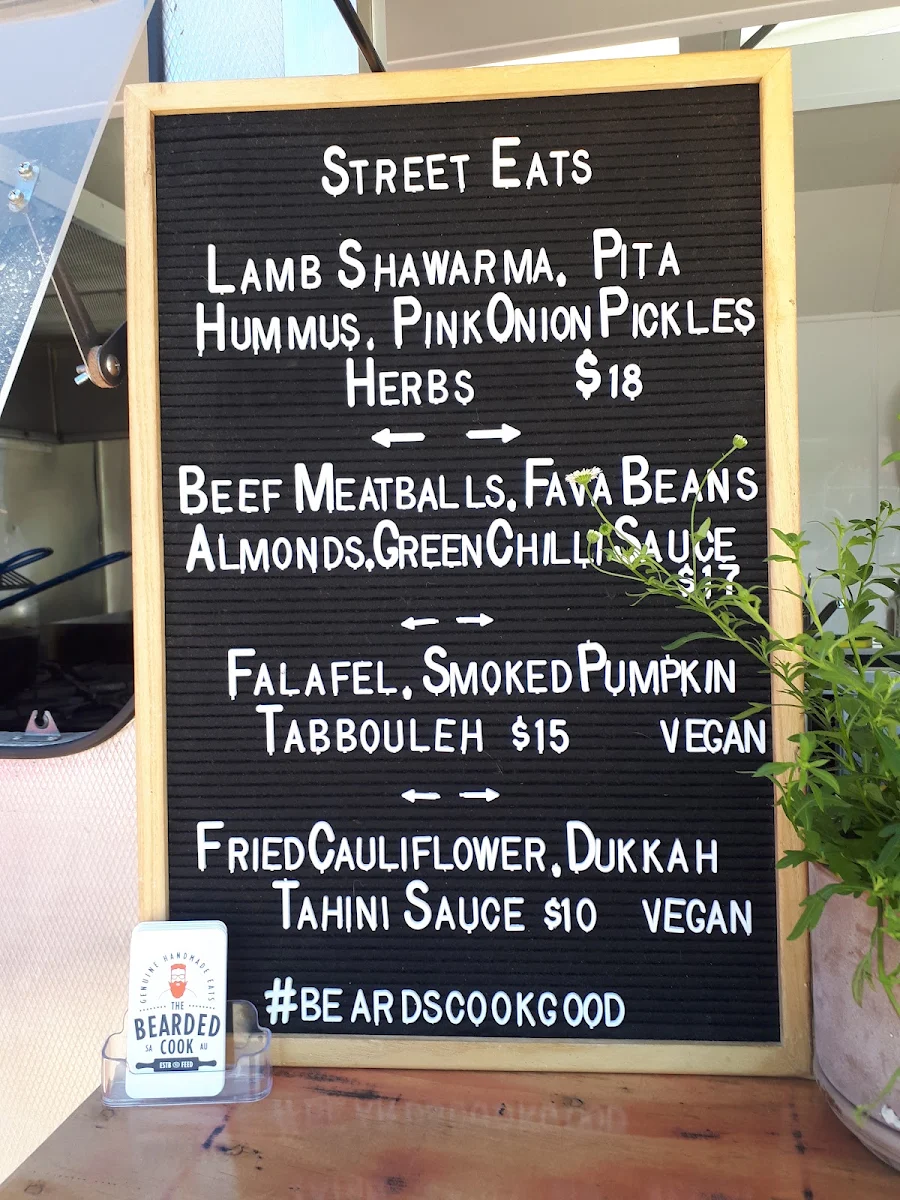 STREET EATS
LAMB SHAWARMA, PITA
HUMMUS, PINK ONION PICKLES
HERBS $18
BEEF MEATBALLS, FAVA BEANS
ALMONDS, GREEN CHILLI SAUCE
$17
FALAFEL, SMOKED PUMPKIN
TABBOULEH $15 VEGAN
FRIED CAULIFLOWER, DUKKAH
TAHINI SAUCE $10 VEGAN
#BEARDSCOOKGOOD
GENUINE HANDMADE EATS
THE
BEARDED
SA COOK AU
ESTB FEED